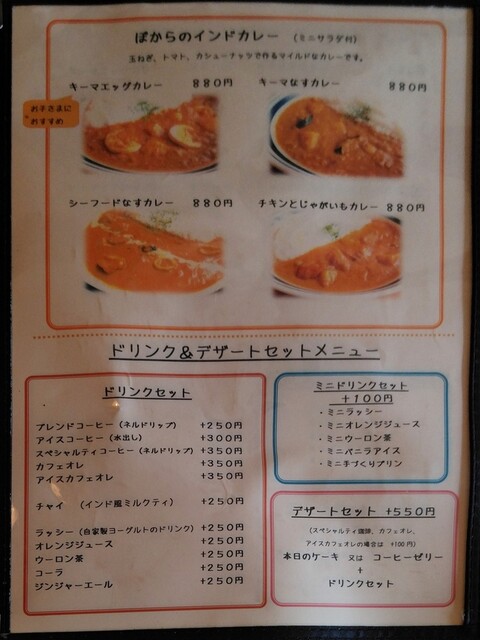 ぽからのインドカレー (ミニサラダ付)
玉ねぎ、トマト、カシューナッツで作るマイルドなカレーです。
キーマエッグカレー 880円
キーマなすカレー 880円
お子さまに
おすすめ
シーフードなすカレー 880円
チキンとじゃがいもカレー 880円
ドリンク&デザートセットメニュー
ドリンクセット
ブレンドコーヒー (ネルドリップ) +250円
アイスコーヒー (水出し) +300円
スペシャルティコーヒー (ネルドリップ) +350円
カフェオレ +350円
アイスカフェオレ +350円
チャイ (インド風ミルクティ) +250円
ラッシー (自家製ヨーグルトのドリンク) +250円
オレンジジュース +250円
ウーロン茶 +250円
コーラ +250円
ジンジャーエール +250円
ミニドリンクセット
+100円
・ミニラッシー
・ミニオレンジジュース
・ミニウーロン茶
・ミニバニラアイス
・ミニ手づくりプリン
デザートセット +550円
(スペシャルティ珈琲、カフェオレ、
アイスカフェオレの場合は +100円)
本日のケーキ 又は コーヒーゼリー
+
ドリンクセット